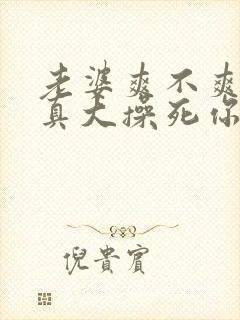 老婆爽不爽
真大操死你
倪贵宾